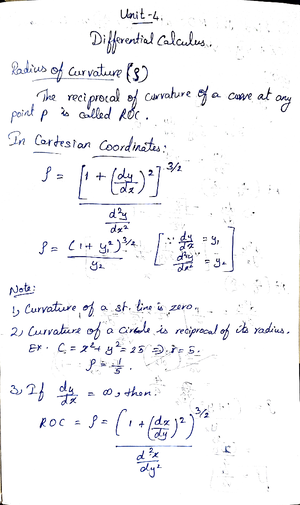 Unit-4.
Differential Calculus.
Radius of Curvature (ρ)
The reciprocal of curvature of a curve at any
point p is called ROC.
In Cartesian Coordinates:
ρ = [1 + (dy/dx)²]^3/2 / d²y/dx²
ρ = (1 + y₁²)^3/2 / y₂ [∵ dy/dx = y₁, d²y/dx² = y₂]
Note:
1, Curvature of a st. line is zero.
2, Curvature of a circle is reciprocal of its radius.
Ex. C = x² + y² = 25 ⇒ r = 5.
ρ = 1/5.
3, If dy/dx = ∞, then.
ROC = ρ = (1 + (dx/dy)²)^3/2 / d²x/dy²